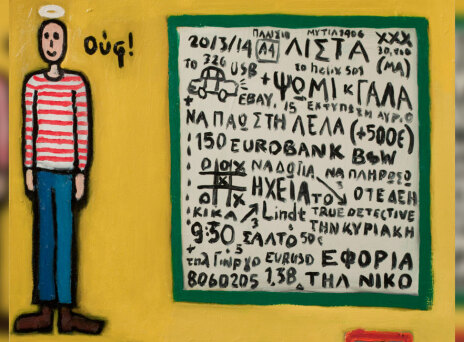 Ούφ!
ΠΛΑΙΣΙΟ ΜΥΤΙΛ 1906 XXX
20/3/14 A4 ΛΙΣΤΑ 30,900
ΤΟ 326 USB το helix 501 (ΜΑ)
+ ΨΩΜΙ Κ ΓΑΛΑ
EBAY, 15 ΕΚΤΥΠΩΣΗ ΑΥΡΙΟ
ΝΑ ΠΑΩ ΣΤΗ ΛΕΛΑ (+500€)
150 EUROBANK B@W
ΝΑ ΔΩ ΠΑ ΝΑ ΠΛΗΡΩΣΩ
ΗΧΕΙΑ ΤΟ ΟΤΕ ΔΕΗ
ΚΙΚΑ Lindt TRUE DETECTIVE
9:30 ΣΑΛΤΟ 50€ ΤΗΝ ΚΥΡΙΑΚΗ
τηλ Γιώργο EURUSD ΕΦΟΡΙΑ
8060205 1,38 ΤΗΛ ΝΙΚΟ